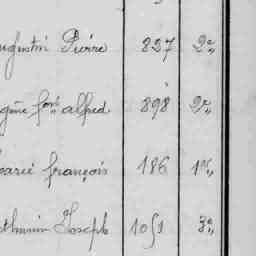 ugustin Pierre 827 2e„
gène fois alfred 898 2e„
marié françois 186 1re„
thumin Joseph 1051 3e„